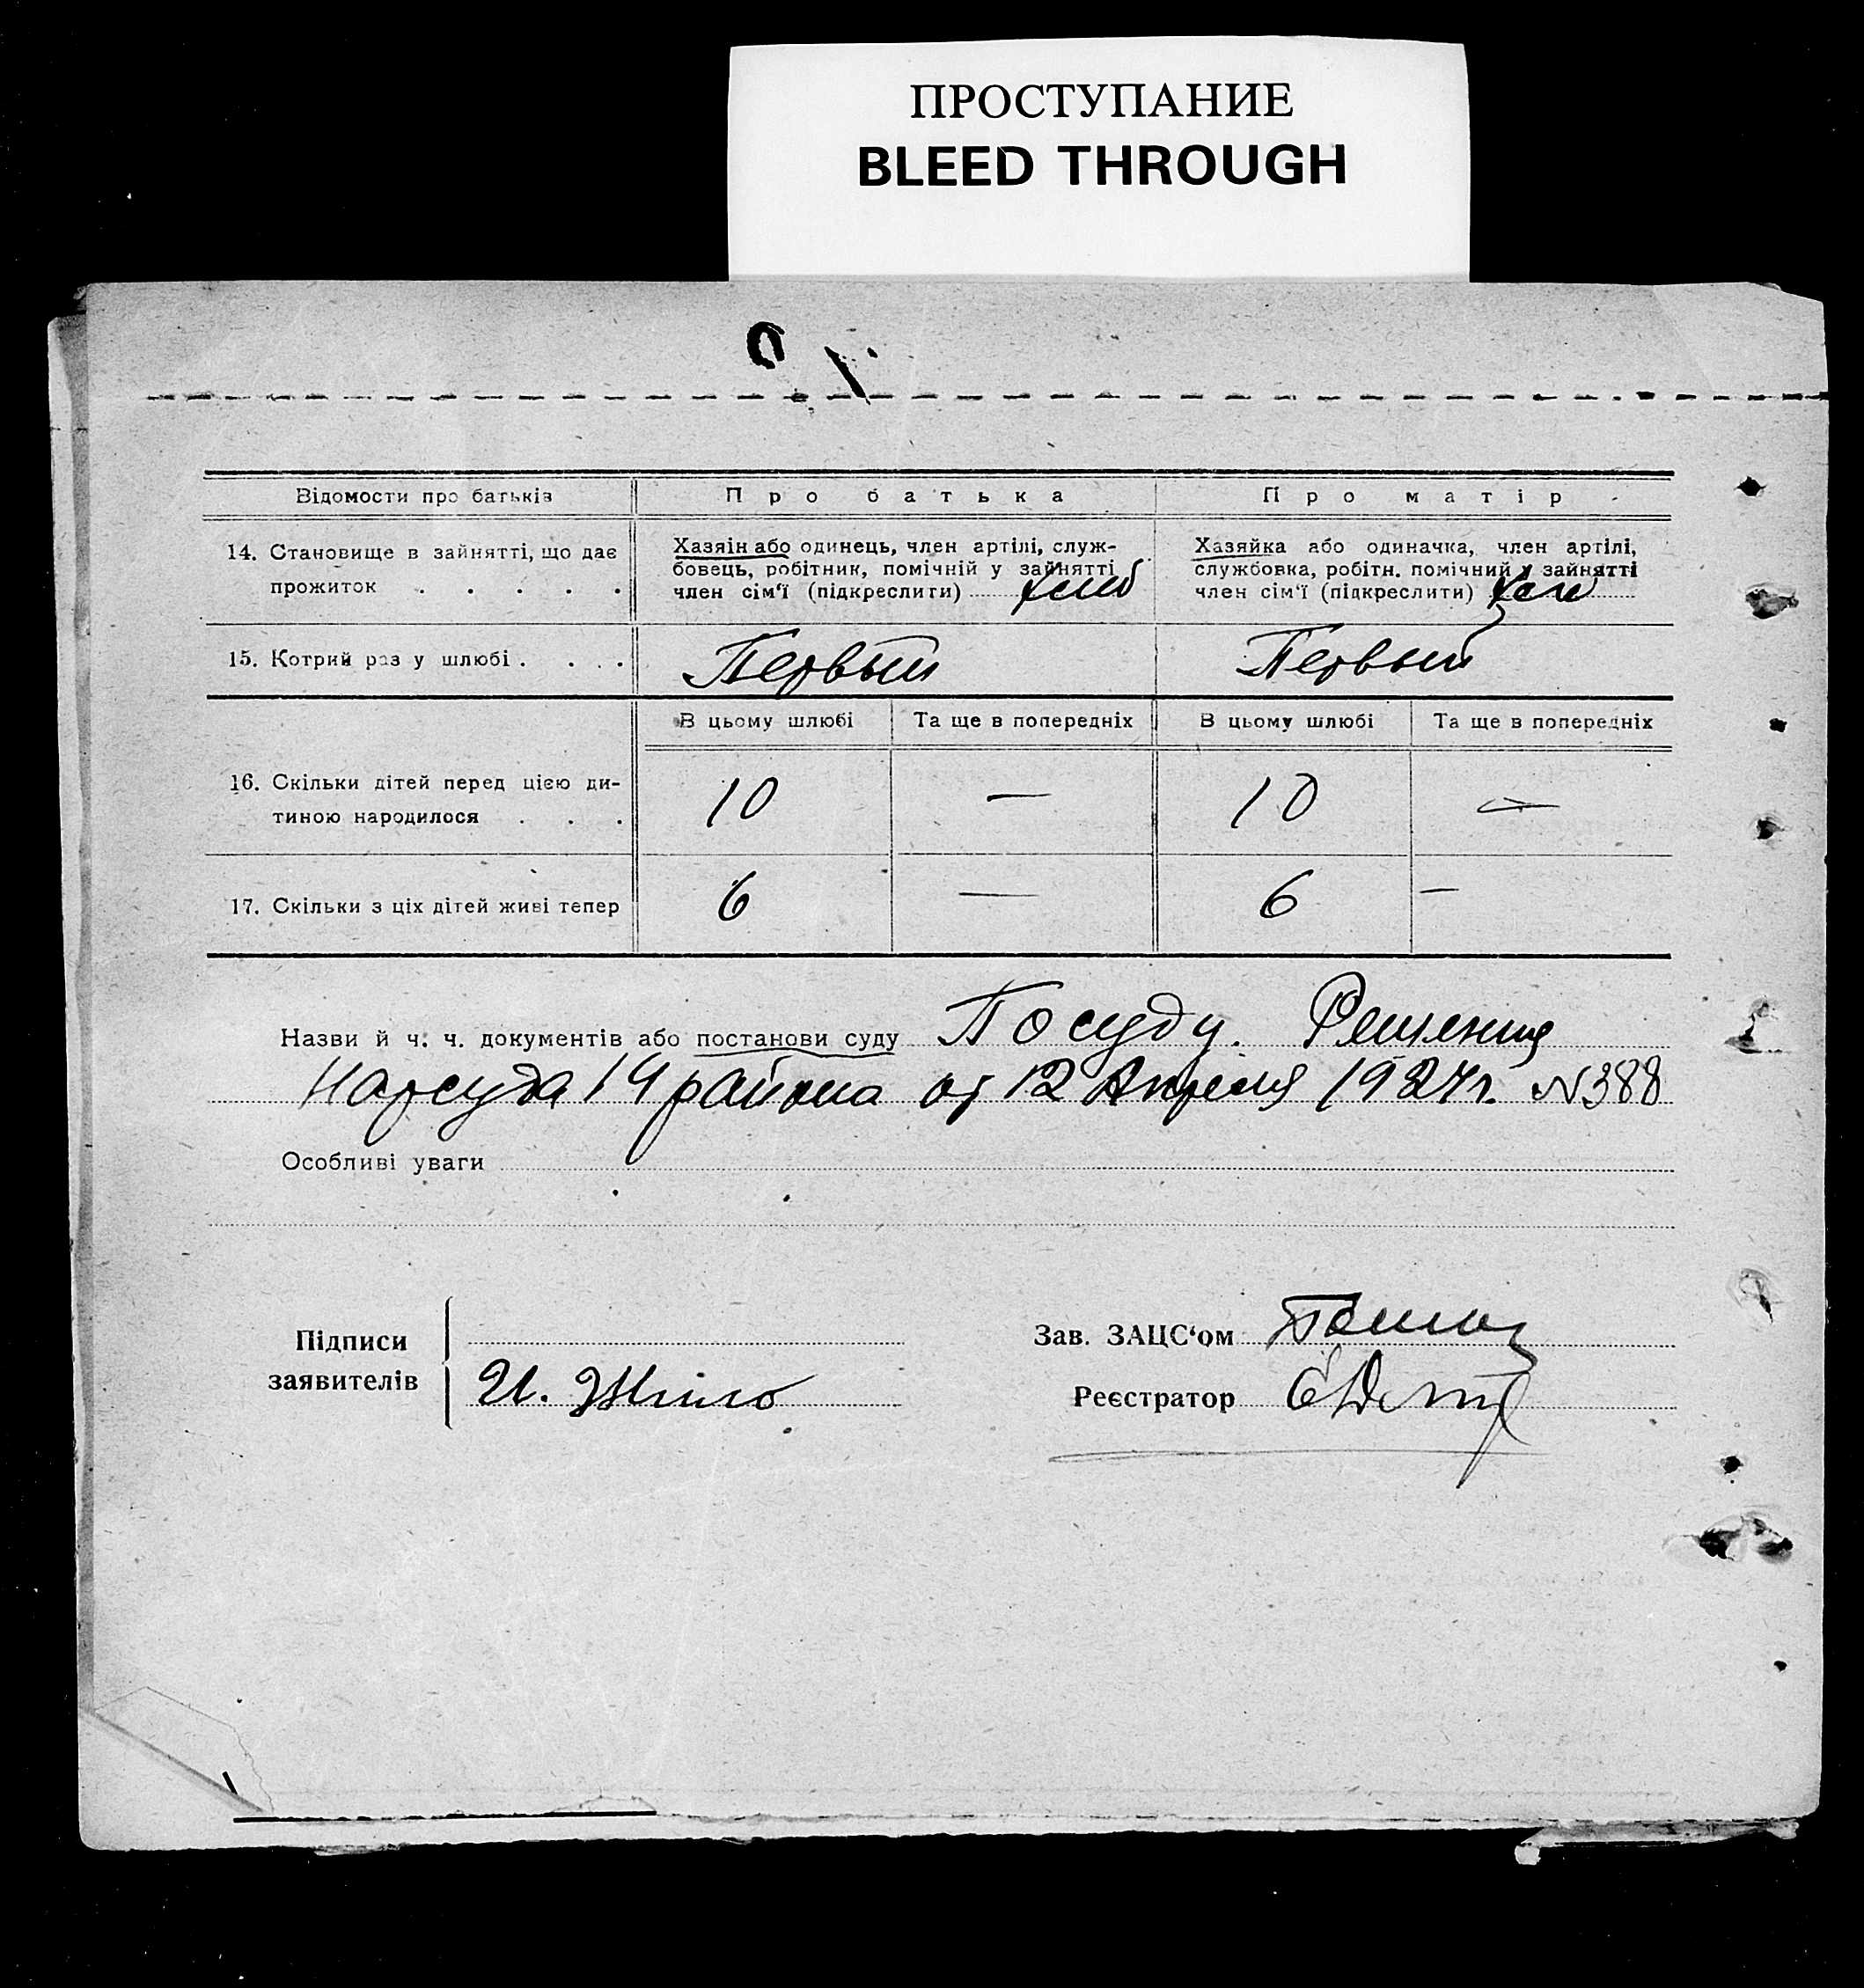 ПРОСТУПАНИЕ
BLEED THROUGH
Відомости про батьків
Про батька
Про матір
14. Становище в зайнятті, що дає
прожиток . . . . .
Хазяін або одинець, член артілі, служ-
бовець, робітник, помічній у зайнятті
член сім'ї (підкреслити)
Хазяйка або одиначка, член артілі,
службовка, робітн. помічний у зайнятті
член сім'ї (підкреслити)
15. Котрий раз у шлюбі . . . .
Первый
Первый
В цьому шлюбі
Та ще в попередніх
В цьому шлюбі
Та ще в попередніх
16. Скільки дітей перед цією ди-
тиною народилося . . .
10 —
10 —
17. Скільки з ціх дітей живі тепер
6 —
6 —
Назви й ч. ч. документів або постанови суду По суду. Решения
Нарсуда 14 района от 12 Апреля 1927 г. № 388
Особливі уваги
Підписи
заявителів
И.
Зав. ЗАЦС'ом
Реєстратор